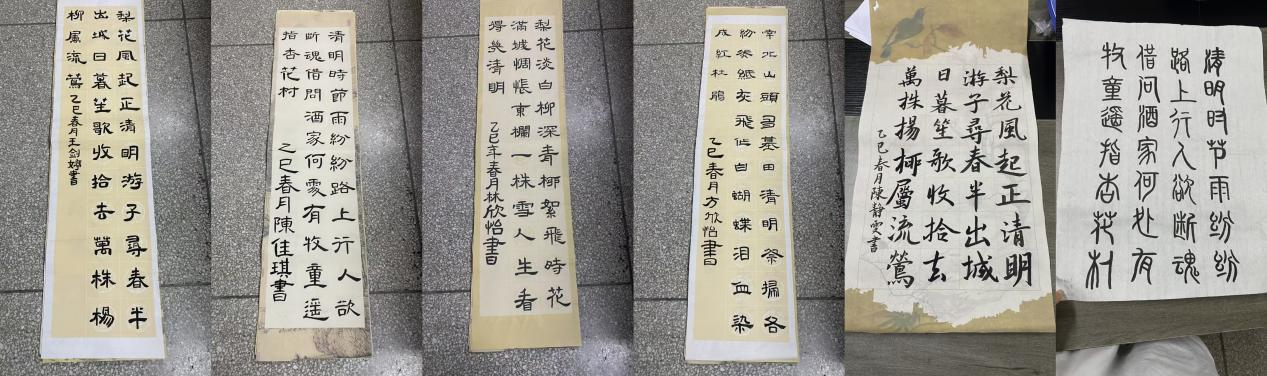 梨花風起正清明游子尋春半
出城日暮笙歌收拾去萬株楊
柳屬流鶯 乙巳春月王剑婷書
清明時節雨紛紛路上行人欲
断魂借問酒家何處有牧童遥
指杏花村 乙巳春月陳佳琪書
梨花淡白柳深青柳絮飛時花
滿城惆悵東欄一株雪人生看
得幾清明 乙巳年春月林欣怡書
南北山頭多墓田清明祭掃各
紛然紙灰飛作白蝴蝶泪血染
成紅杜鵑 乙巳春月方欣怡書
梨花風起正清明
游子尋春半出城
日暮笙歌收拾去
萬株揚柳屬流鶯
乙巳春月陳靜雯書
清明时节雨纷纷
路上行人欲断魂
借问酒家何处有
牧童遥指杏花村